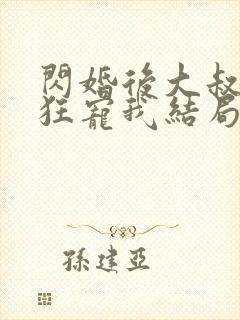 閃婚後大叔
狂寵我結局
孫建亞